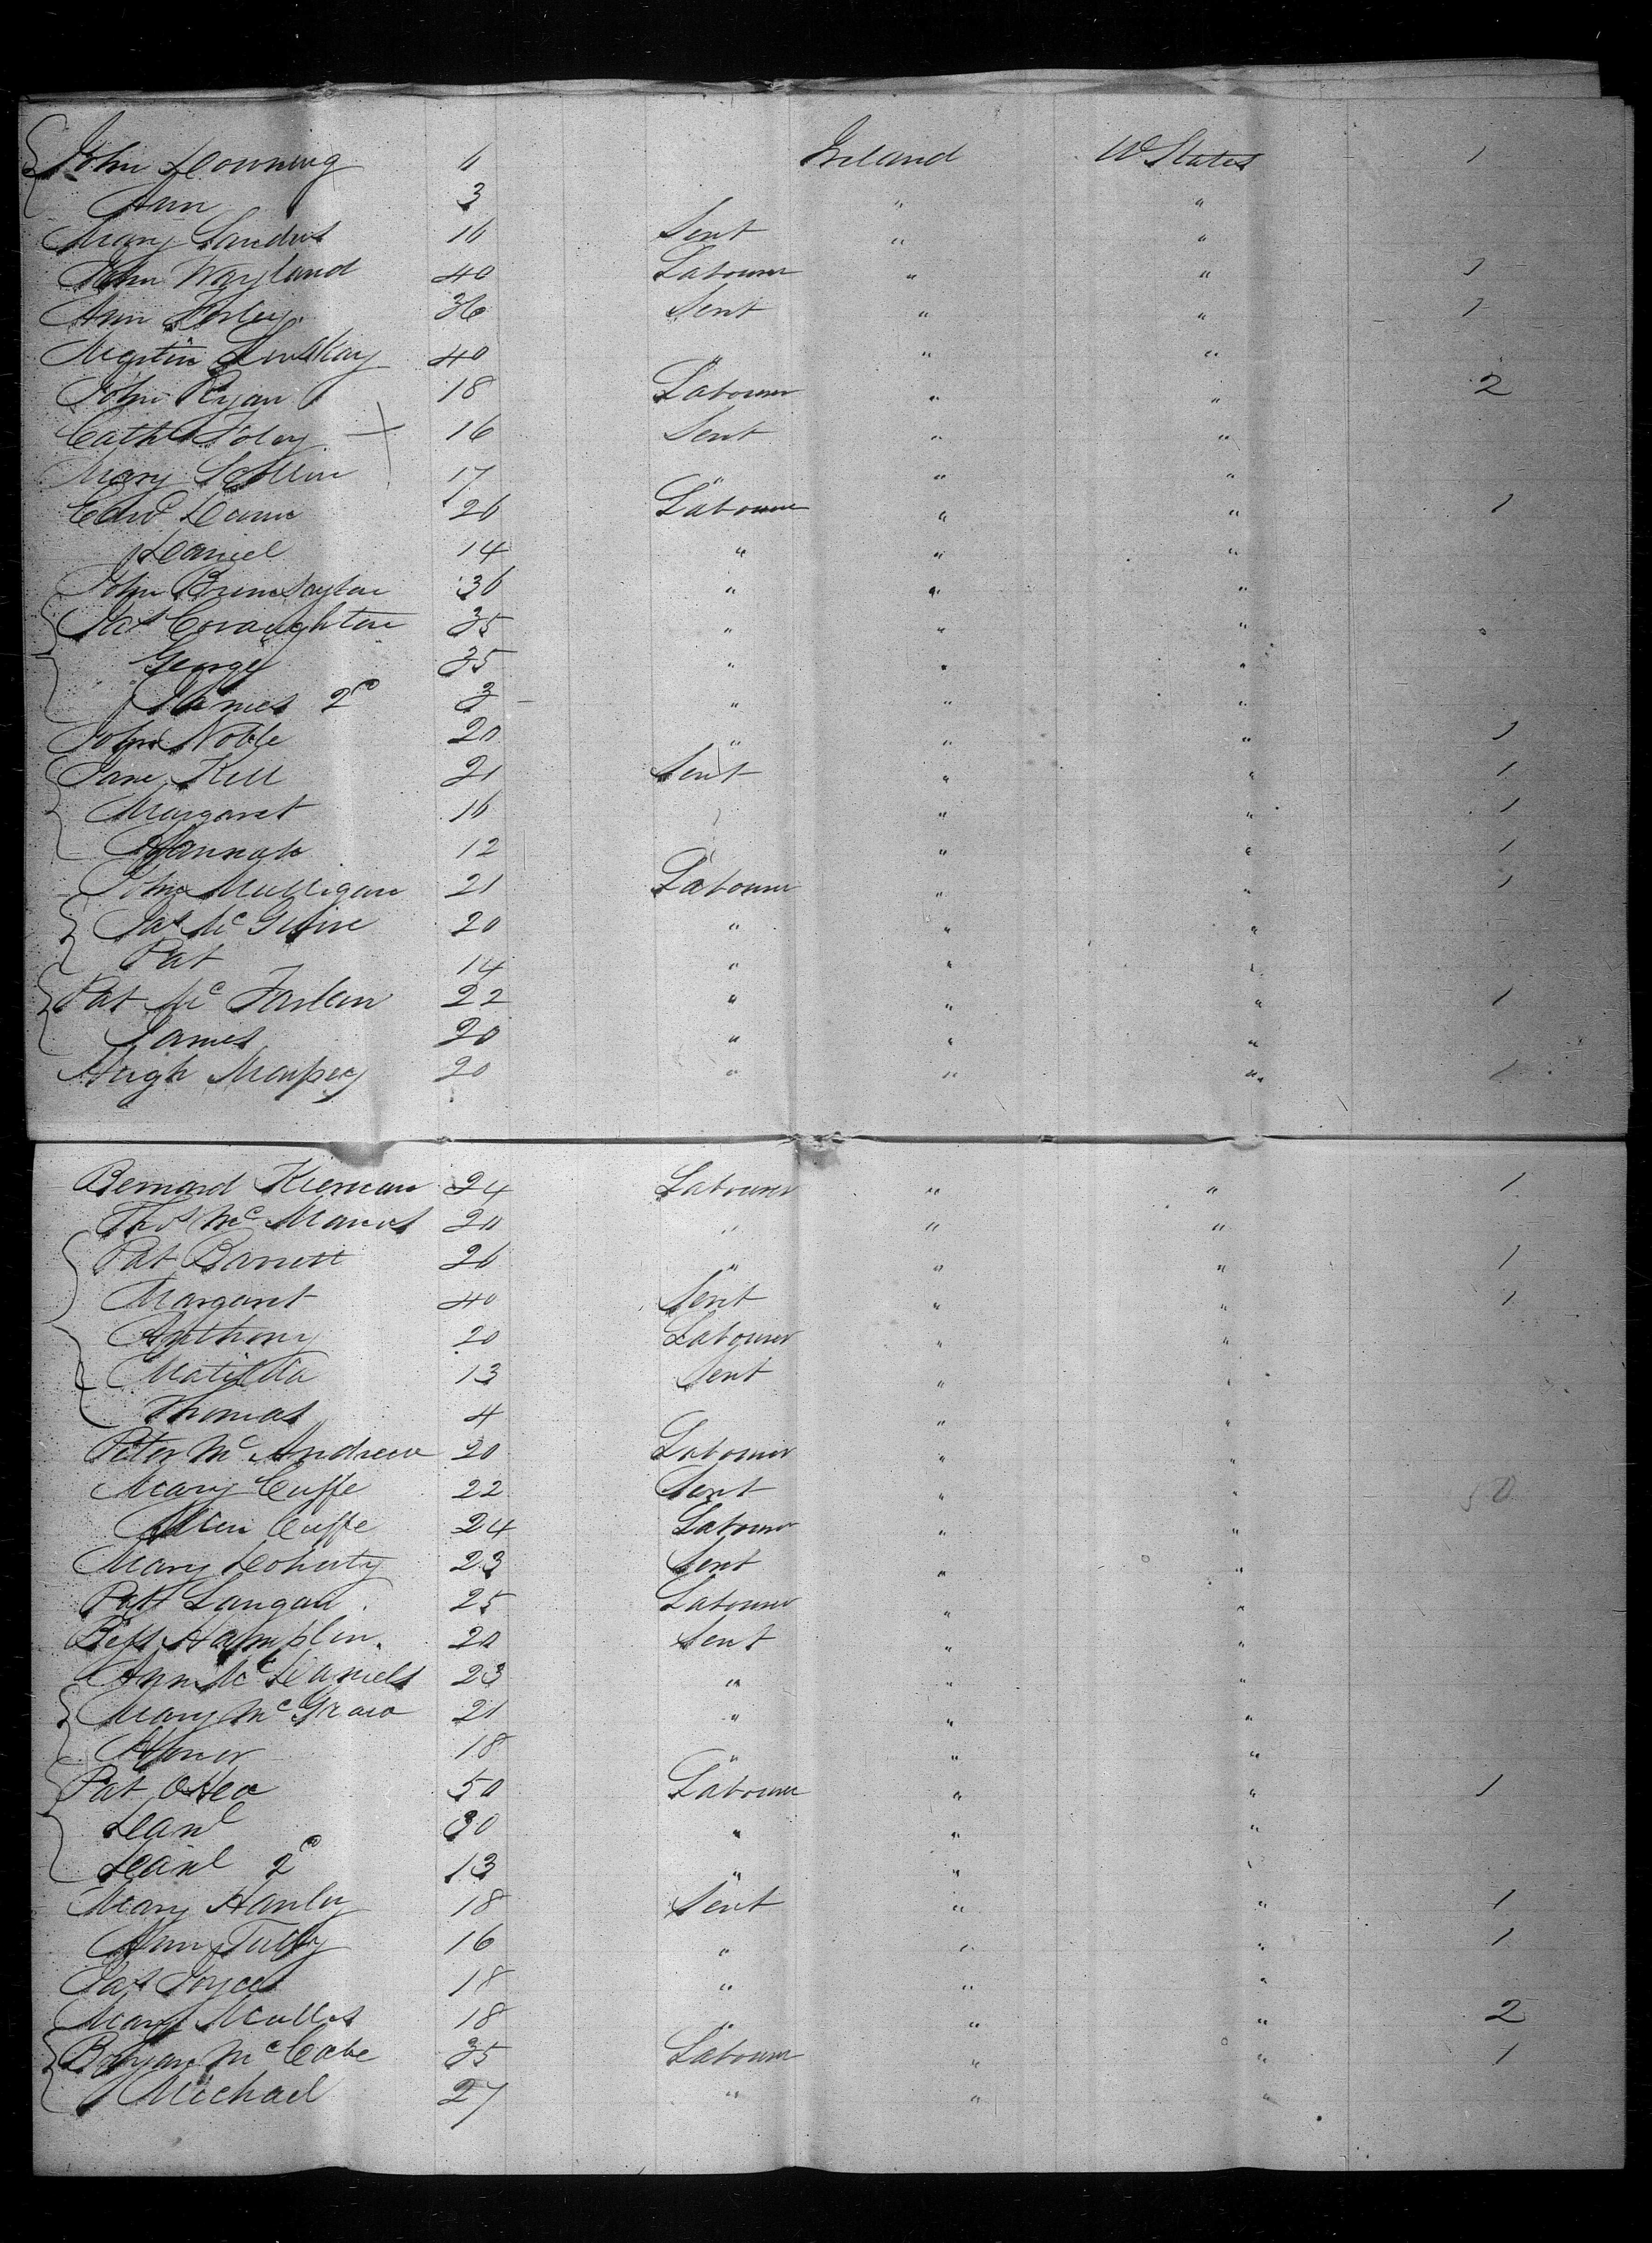 John Downing 6 Ireland U States 1
Ann 3 " "
Mary 16 Sert " "
John Wayland 40 Labourer " " 1
Ann 36 Sert " " 1
Martin 40 " " "
John Ryan 18 Labourer " " 2
Cath Foley 16 Sert " "
Mary 17 " " "
Edwd 20 Labourer " " 1
Daniel 14 " " "
John 36 " " "
Jas 35 " " "
George 35 " " "
James 2d 3 " " "
John Noble 20 " " " 1
Jane Kell 21 Sert " " 1
Margaret 16 " " 1
Hannah 12 " " 1
John Mulligan 21 Labourer " " 1
Jas McGuire 20 " " "
Pat 14 " " "
Pat Mc Farlan 22 " " " 1
James 20 " " "
Hugh 20 " " " 1
Bernard Kiernan 24 Labourer " " 1
Thos McManus 20 " " "
Pat Barrett 26 " " " 1
Margaret 40 Sert " " 1
Anthony 20 Labourer " "
Matilda 13 Sert " "
Thomas 4 " "
Peter McAndrew 20 Labourer " "
Mary Cuffe 22 Sert " " 50
Cuffe 24 Labourer " "
Mary Doherty 23 Sert " "
Patt Langan 25 Labourer " "
Bess 20 Sert " "
Ann McDaniels 23 " " "
Mary McGraw 21 " " "
Honor 18 " " "
Pat OHea 50 Labourer " " 1
Danl 30 " " "
Danl 2d 13 " " "
Mary Hanley 18 Sert " " 1
Ann Tully 16 " " " 1
Joyce 18 " " "
Mary 18 " " " 2
Bryan McCabe 35 Labourer " " 1
Michael 27 " " "